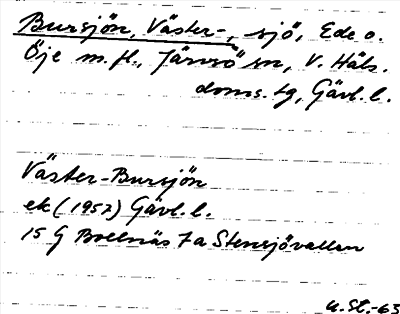 Bursjön, Väster-, sjö, Ede o.
Öje m.fl., Järvsö sn, V. Häls.
doms. tg, Gävl. l.
Väster-Bursjön
ek (1957) Gävl. l.
15 G Bollnäs 7a Stensjövallen
U.St.-63